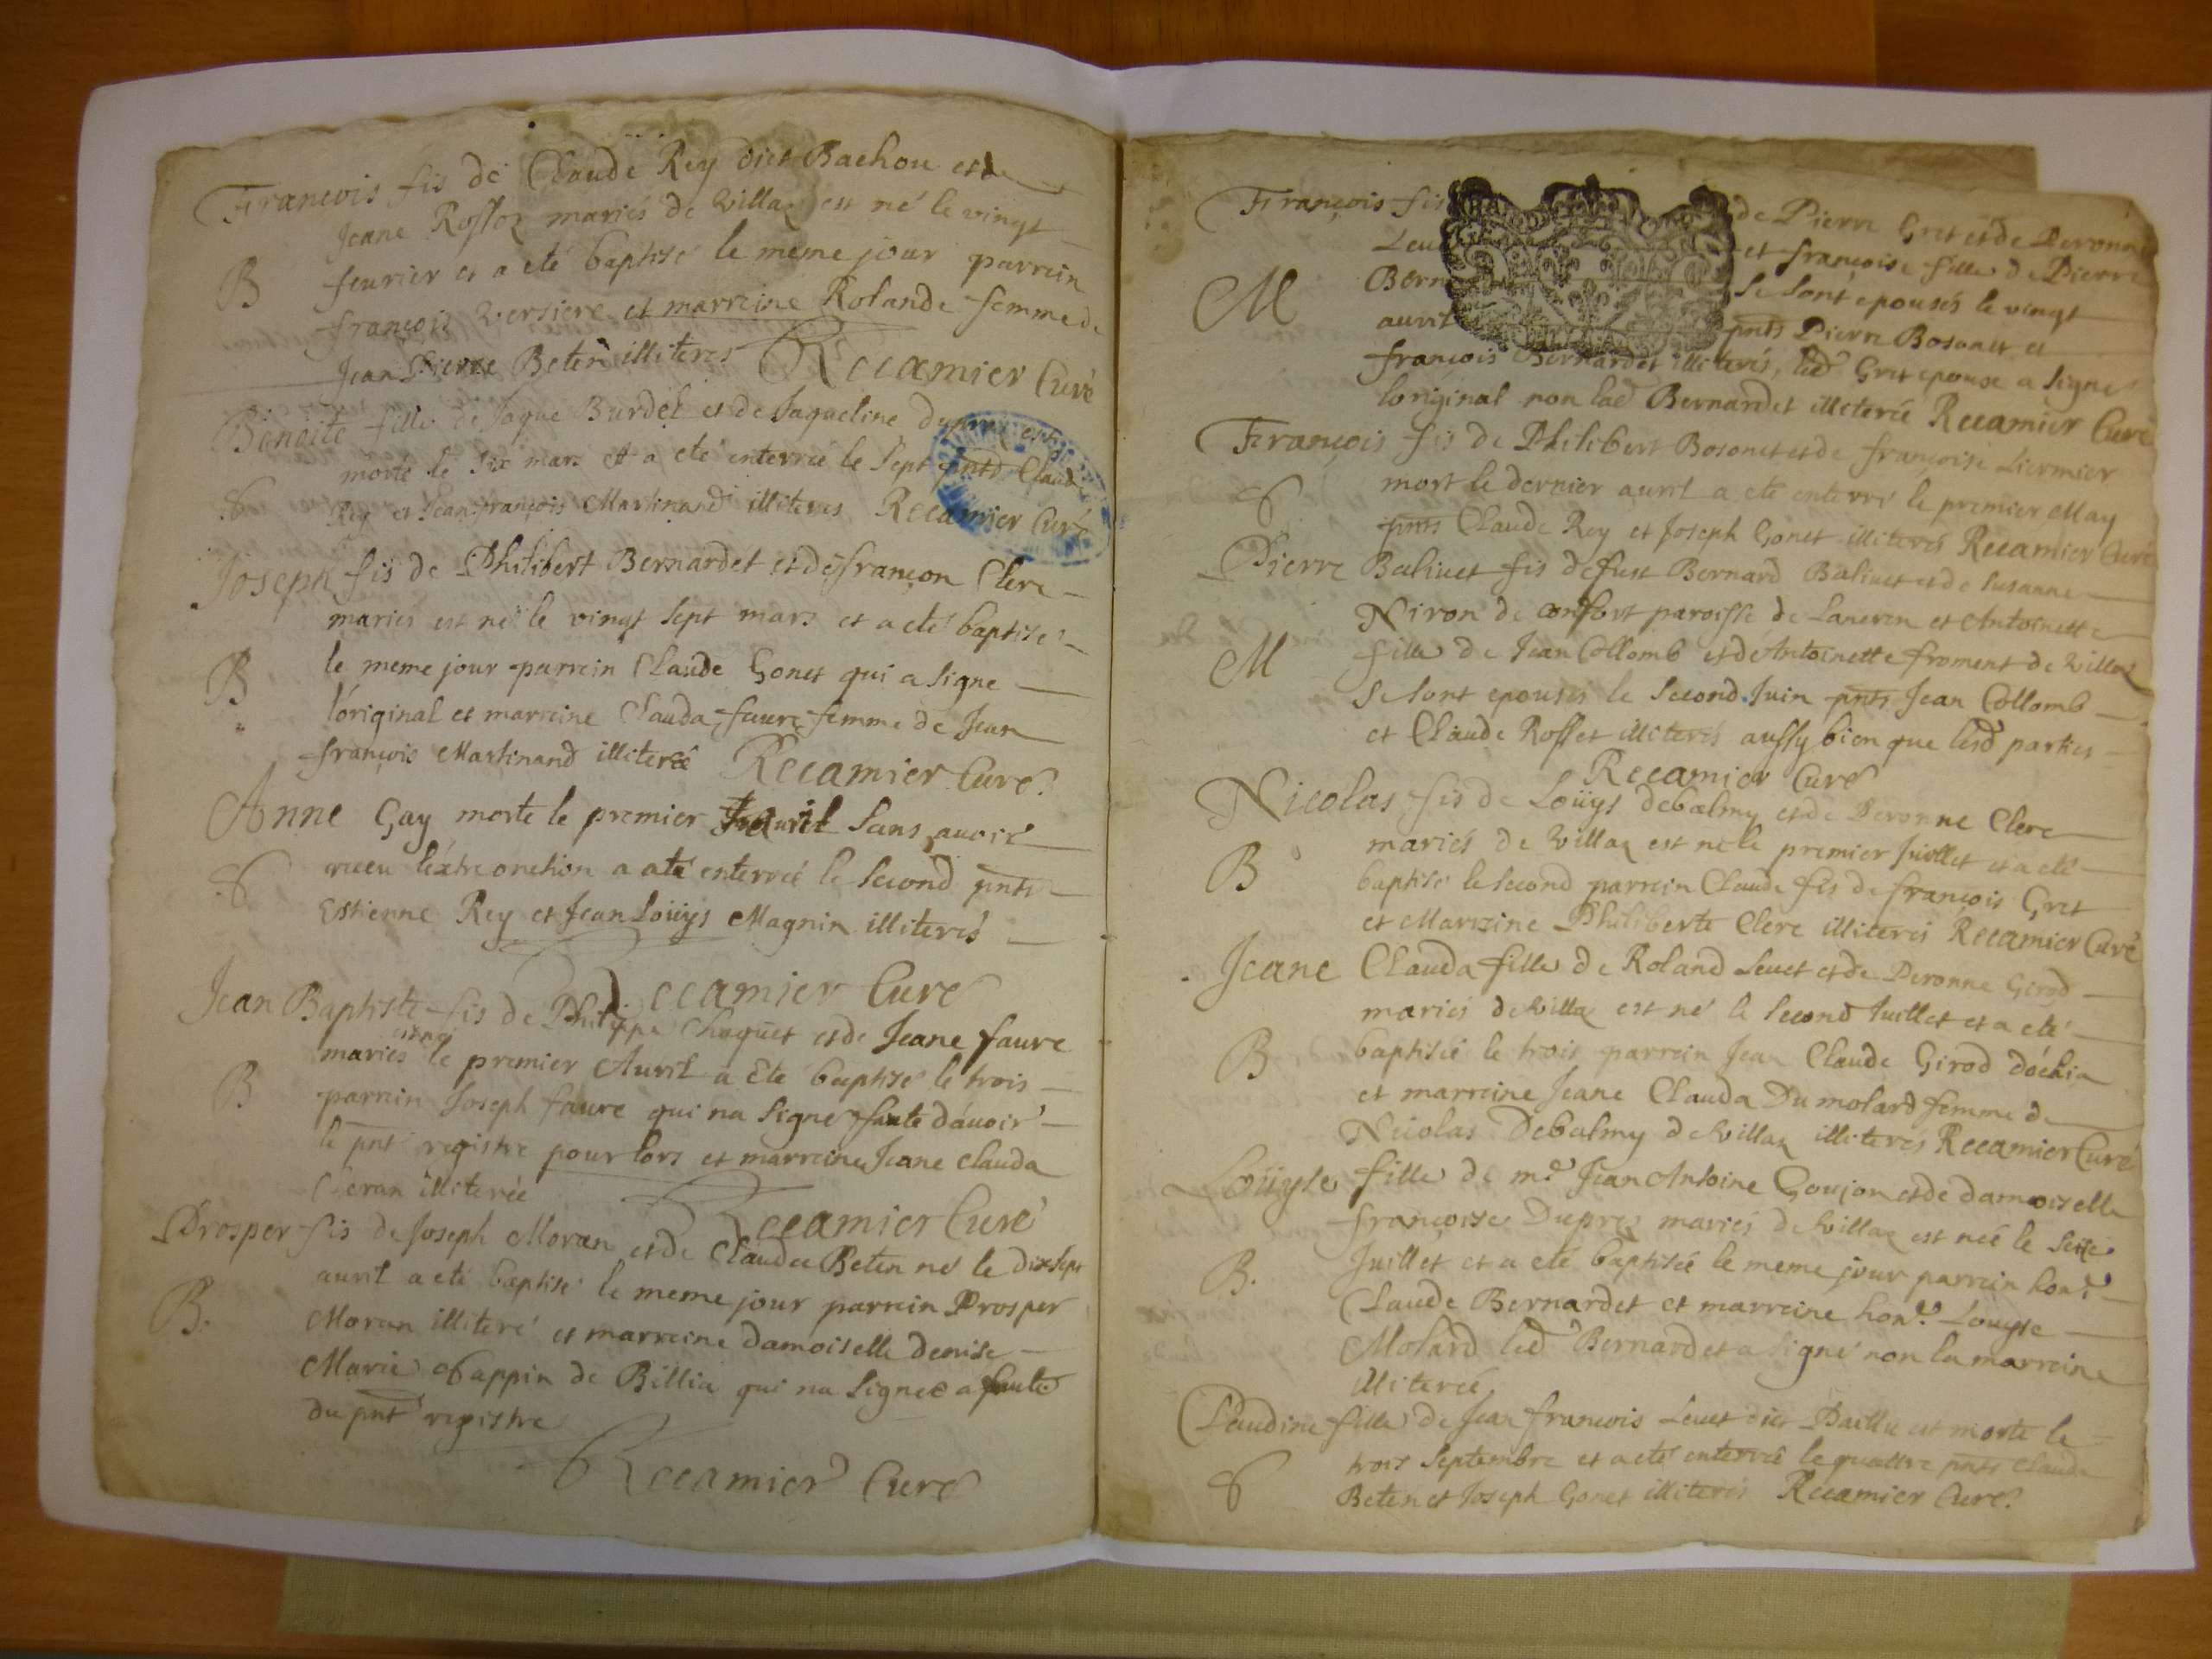 François fis de Claude Rey dict Bachou et de
Jeane Rosset mariés de villaz est né le vingt
B
feurier et a eté baptisé le meme jour parrein
françois versiere et marreine Rolande femme de
Jean Pierre Beten illiterés Recamier Curé
Benoite fille de Jaque Burdel et de Jaqueline dupraz est
morte le six mars et a eté enterrée le sept pnts Claude
Rey et Jean françois Martinand illiteres Recamier Curé
Joseph fis de Philibert Bernardet et de françon Clere
mariés est né le vingt sept mars et a eté baptisé
B
le meme jour parrein Claude Gonet qui a signe
l'original et marreine Clauda faure femme de Jean
françois Martinand illiterée Recamier Curé
Anne Gay morte le premier Auril sans auoir
receu l'extre onction a ate enterrée le second pnts
Estienne Rey et Jean Loüys Magnin illiterés
Recamier Curé
Jean Baptiste fis de Philippe Chaquet et de Jeane faure
mariés est né le premier Auril a Ete baptisé le trois
B
parrein Joseph faure qui na signe faute d'auoir
le pnt registre pour lors et marreine Jeane Clauda
illiterée
Recamier Curé
Prosper fis de Joseph Moran et de Claudea Beten né le dixsept
auril a eté baptisé le meme jour parrein Prosper
B.
Moran illiteré et marreine damoiselle denise
Marie de Billia qui na signee a faute
du pnt registre
Recamier Curé
François fis de Pierre Gret et de Peronne
Leu et françoise fille de Pierre
M
Bern se sont epousés le vingt
auril pnts Pierre Bosonet et
françois Bernardet illiterés, led Gret epouse a signe
l'original non lad Bernardet illiterée Recamier Curé
François fis de Philibert Bosonet et de françoise Liermier
mort le dernier auril a eté enterré le premier May
pnts Claude Rey et Joseph Gonet illiterés Recamier Curé
Pierre Baliuet fis de fust Bernard Baliuet et de Susanne
Niron de confort paroisse de Laneren et Antoinette
M
fille de Jean Collomb et de Antoinette froment de villaz
se sont epousés le second Juin pnts Jean Collomb
et Claude Rosset illiterés aussy bien que lesd parties
Recamier Curé
Nicolas fis de Loüys debalmy et de Peronne Clere
mariés de villaz est né le premier Juillet et a eté
B
baptisé le second parrein Claude fis de françois Gret
et Marreine Philiberte Clere illiterés Recamier Curé
Jeane Clauda fille de Roland Leuet et de Peronne Girod
mariés de villaz est né le second Juillet et a eté
B
baptisée le trois parrein Jean Claude Girod d'óchia
et marreine Jeane Clauda Du molard femme de
Nicolas Debalmy de villaz illiterés Recamier Curé
Loüyse fille de me Jean Antoine Goujon et de damoiselle
françoise Duprez mariés de villaz est née le seize
B.
Juillet et a eté baptisée le meme jour parrein hon.
Claude Bernardet et marreine hon. Louyse
Molard led Bernardet a signé non la marreine
illiterée
Claudine fille de Jean françois Leuet dict Paillu est morte le
trois Septembre et a eté enterrée le quattre pnts Claude
Beten et Joseph Gonet illiterés Recamier Curé